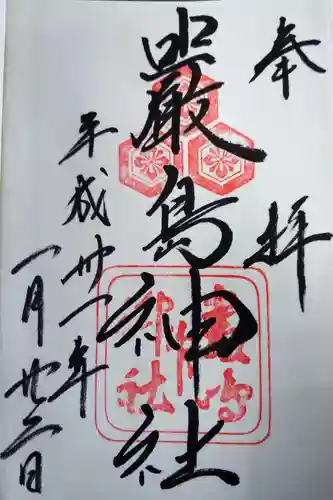 奉拝
嚴島神社
平成卅一年
一月廿二日
嚴嶋
神社